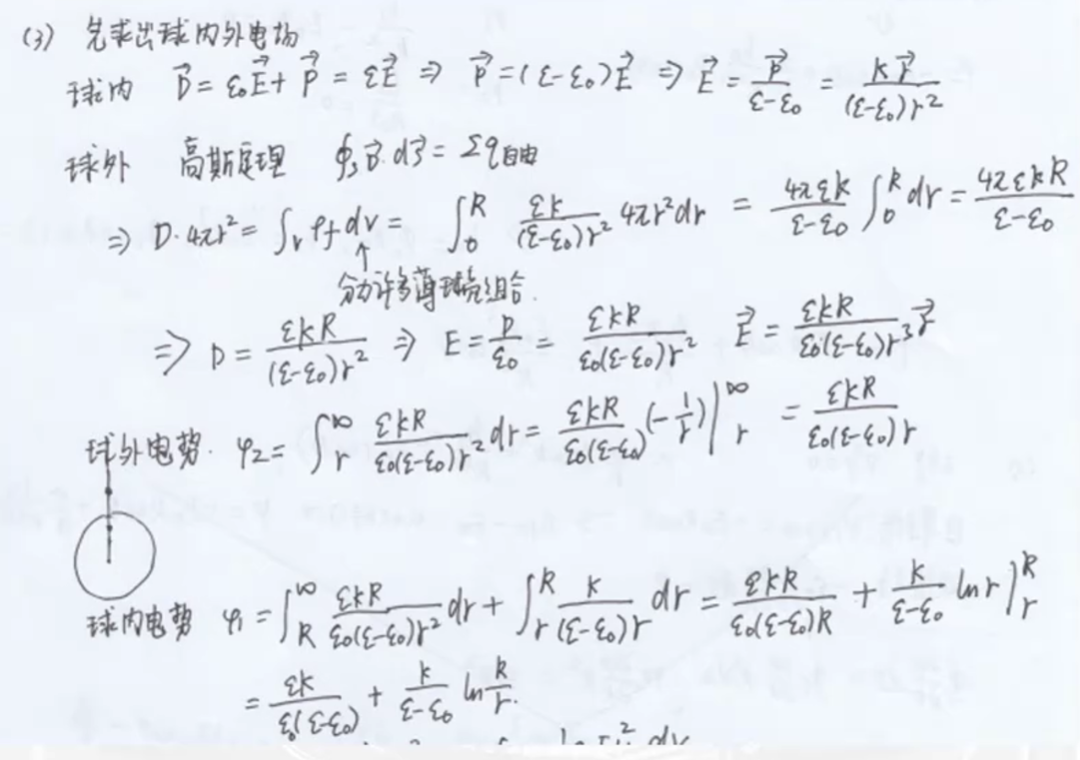 (3) 先求出球内外电场
球内 D⃗ = ε₀E⃗ + P⃗ = εE⃗ ⇒ P⃗ = (ε-ε₀)E⃗ ⇒ E⃗ = P⃗/(ε-ε₀) = kR⃗/((ε-ε₀)r²)
球外 高斯定理 ∮ₛ D⃗·dS⃗ = Σq自由
⇒ D·4πr² = ∫ᵥ ρf dv = ∫₀ᴿ εk/((ε-ε₀)r²) 4πr²dr = 4πεk/(ε-ε₀) ∫₀ᴿ dr = 4πεkR/(ε-ε₀)
↑
分为许多薄球壳组合.
⇒ D = εkR/((ε-ε₀)r²) ⇒ E = D/ε₀ = εkR/(ε₀(ε-ε₀)r²) E⃗ = εkR/(ε₀(ε-ε₀)r³) r⃗
球外电势. φ₂ = ∫ᵣ^∞ εkR/(ε₀(ε-ε₀)r²) dr = εkR/(ε₀(ε-ε₀)) (-1/r)|ᵣ^∞ = εkR/(ε₀(ε-ε₀)r)
球内电势 φ₁ = ∫_R^∞ εkR/(ε₀(ε-ε₀)r²) dr + ∫ᵣᴿ k/((ε-ε₀)r) dr = εkR/(ε₀(ε-ε₀)R) + k/(ε-ε₀) ln r|ᵣᴿ
= εk/(ε₀(ε-ε₀)) + k/(ε-ε₀) ln R/r.